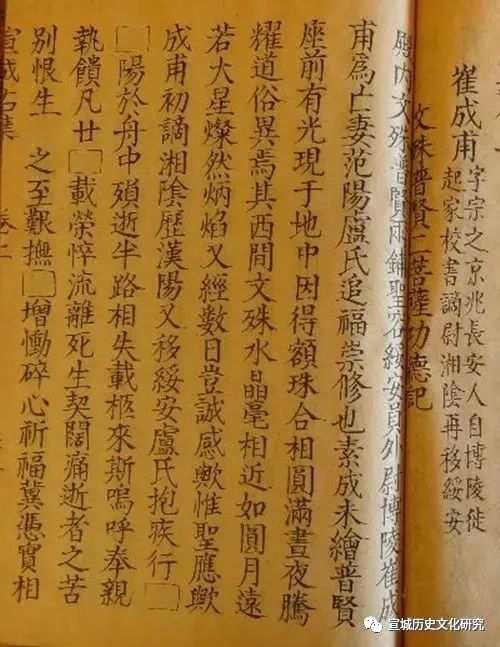 崔成甫
字宗之京兆長安人自博陵徙
起家校書謫尉湘陰再移綏安
文殊普賢二菩薩功德記
殿內文殊普賢兩鋪聖容綏安員外尉博陵崔成
甫為亡妻范陽盧氏追福崇修也素成未繪普賢
座前有光現于地中因得額珠合相圓滿晝夜騰
耀道俗異焉其西間文殊水晶毫相近如圓月遠
若大星燦然炳焰又經數日豈誠感歟惟聖應歟
成甫初謫湘陰歷漢陽又移綏安盧氏抱疾行□
□陽於舟中殞逝半路相失載柩來斯嗚呼奉親
執饋凡廿□載榮悴流離死生契闊痛逝者之苦
別恨生 之至艱撫□增慟碎心祈福冀憑實相
宣城右集 卷二
宣城历史文化研究